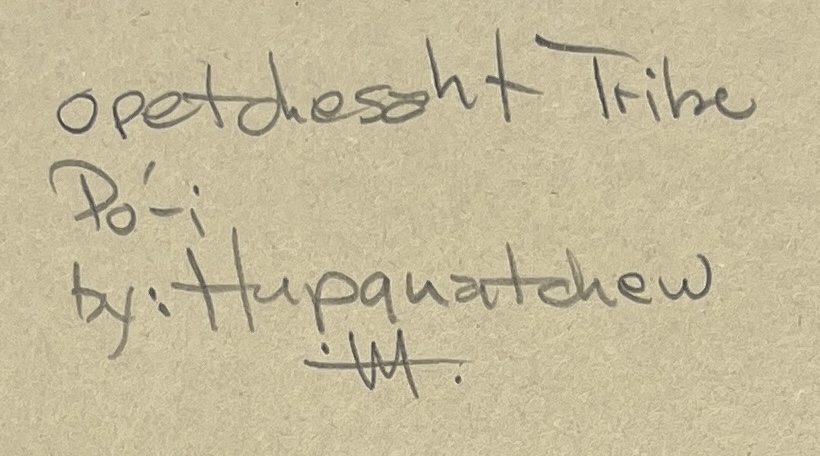 opetchesaht Tribe
Po'-i
by: Hupquatchew